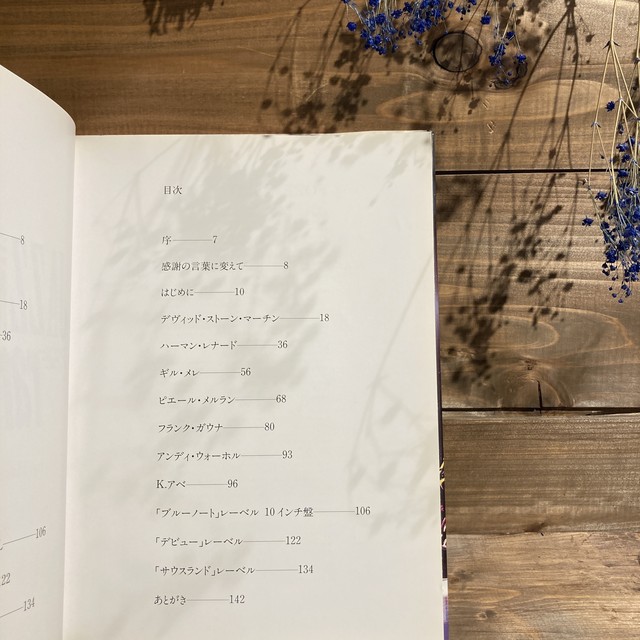 8
18
36
106
22
134
目次
序————7
感謝の言葉に変えて————8
はじめに————10
デヴィッド・ストーン・マーチン————18
ハーマン・レナード————36
ギル・メレ————56
ピエール・メルラン————68
フランク・ガウナ————80
アンディ・ウォーホル————93
K.アベ————96
「ブルーノート」レーベル 10インチ盤————106
「デビュー」レーベル————122
「サウスランド」レーベル————134
あとがき————142